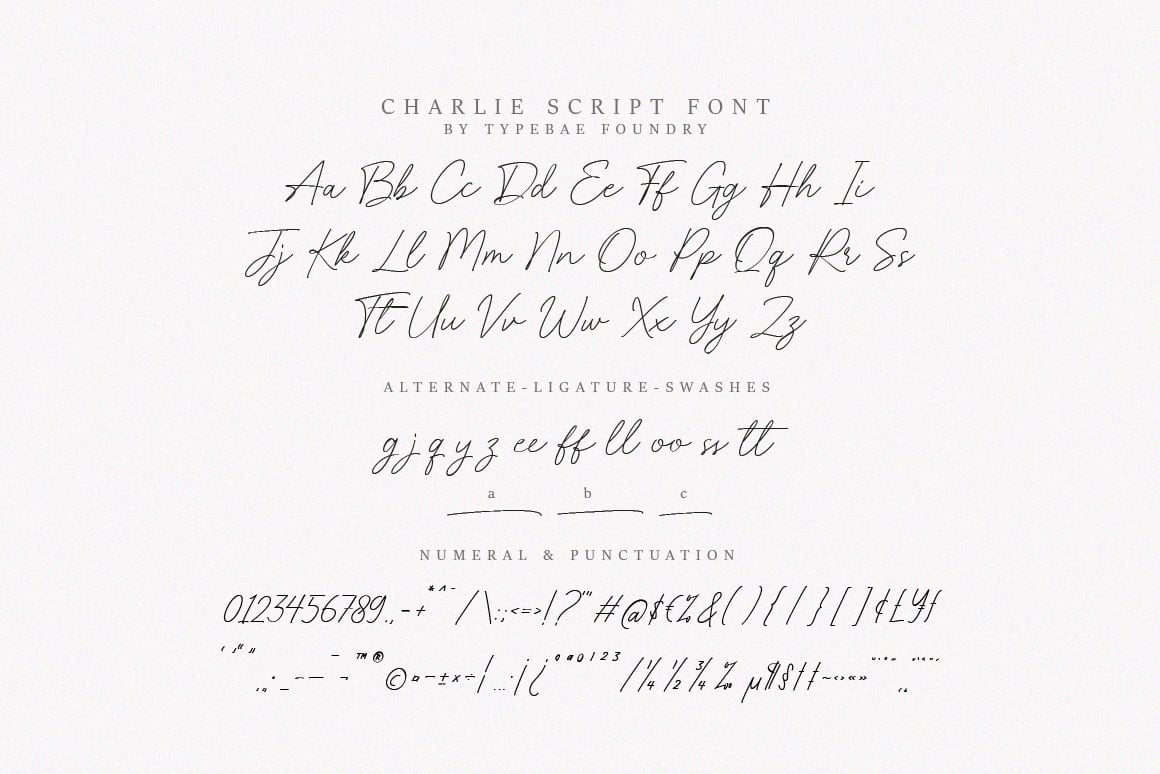 CHARLIE SCRIPT FONT
BY TYPEBAE FOUNDRY
Aa Bb Cc Dd Ee Ff Gg Hh Ii
Jj Kk Ll Mm Nn Oo Pp Qq Rr Ss
Tt Uu Vv Ww Xx Yy Zz
ALTERNATE-LIGATURE-SWASHES
g j q y z ee ff ll oo ss tt
a b c
NUMERAL & PUNCTUATION
0123456789.,-+*^~/\:;<=>!?'"#@$€%&(){/}[]¢£¥ƒ
‘ ’“ ” ‚„·_–—¯¬™®©¤−±×÷¦…·¡¿ºª0123/¼½¾‰µ¶§†‡~‹›«»